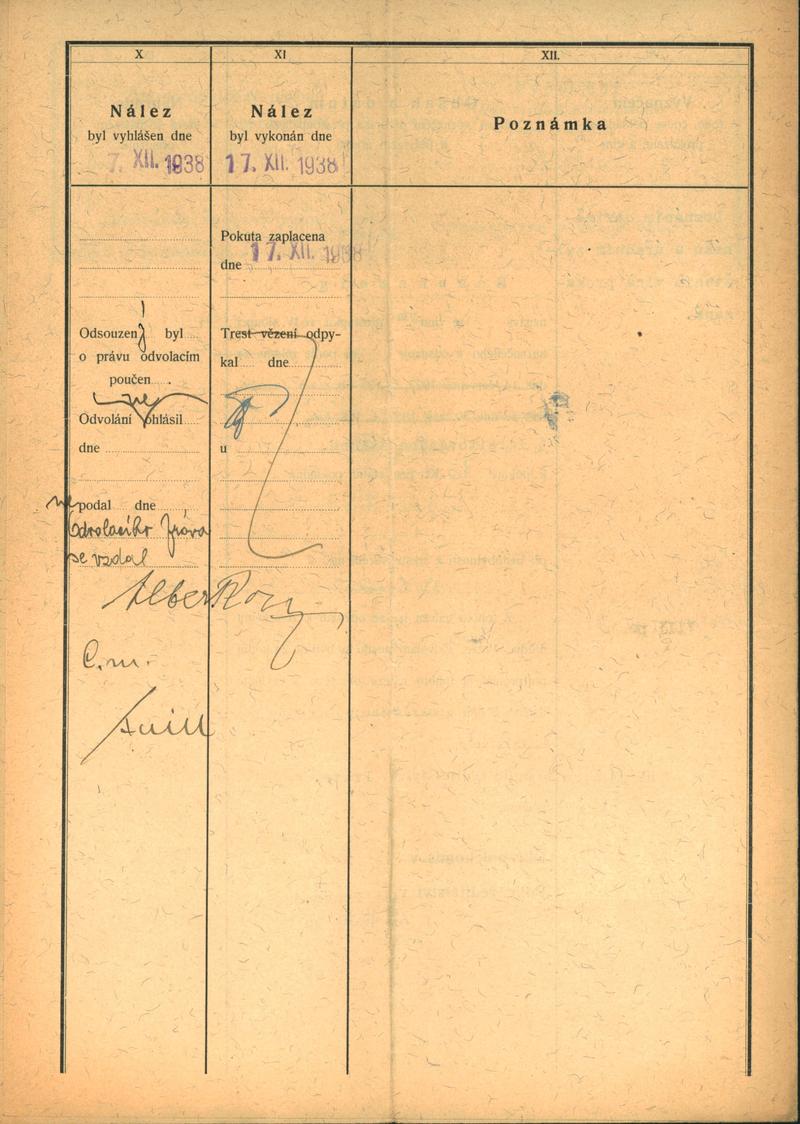 X
Nález
byl vyhlášen dne
7. XII. 1938
Odsouzen byl
o právu odvolacím
poučen
ne
Odvolání ohlásil
dne
ne podal dne
Odvolacího práva
se vzdal
XI
Nález
byl vykonán dne
17. XII. 1938
Pokuta zaplacena
17. XII. 1938
dne
Trest vězení odpy-
kal dne
u
XII.
Poznámka